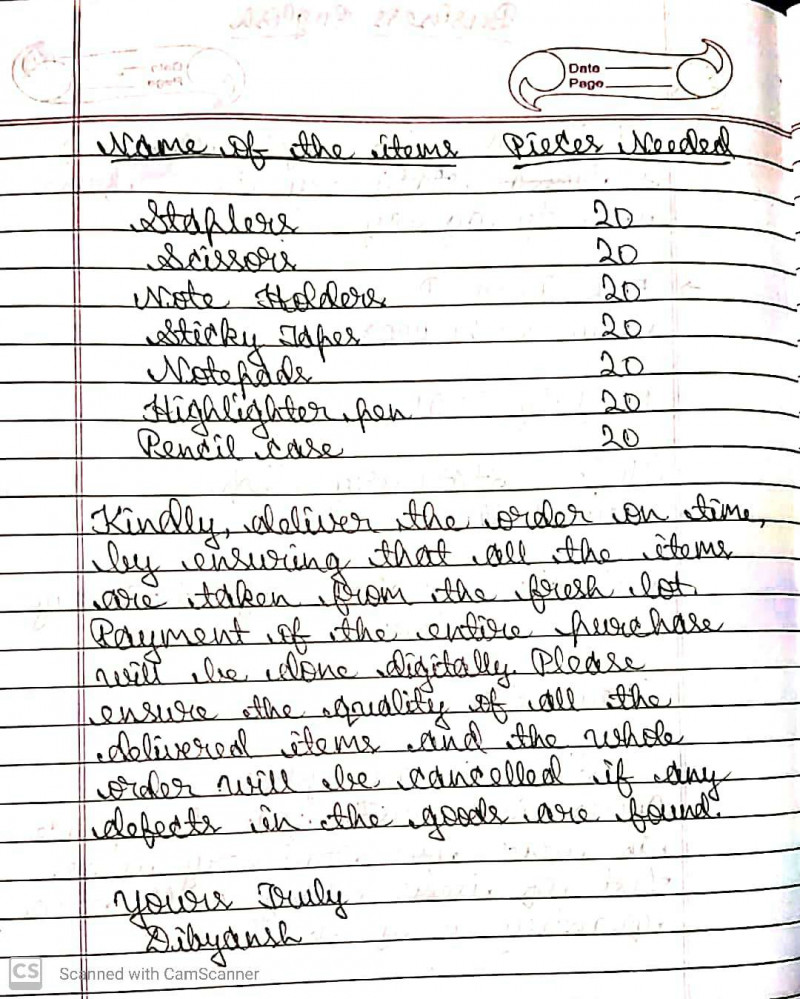 Date
Page
Name of the items Pieces Needed
Staplers 20
Scissors 20
Note Holders 20
Sticky Tapes 20
Notepads 20
Highlighter pen 20
Pencil case 20
Kindly, deliver the order on time,
by ensuring that all the items
are taken from the fresh lot.
Payment of the entire purchase
will be done digitally. Please
ensure the quality of all the
delivered items and the whole
order will be cancelled if any
defects in the goods are found.
Yours Truly
Dibyansh
CS Scanned with CamScanner